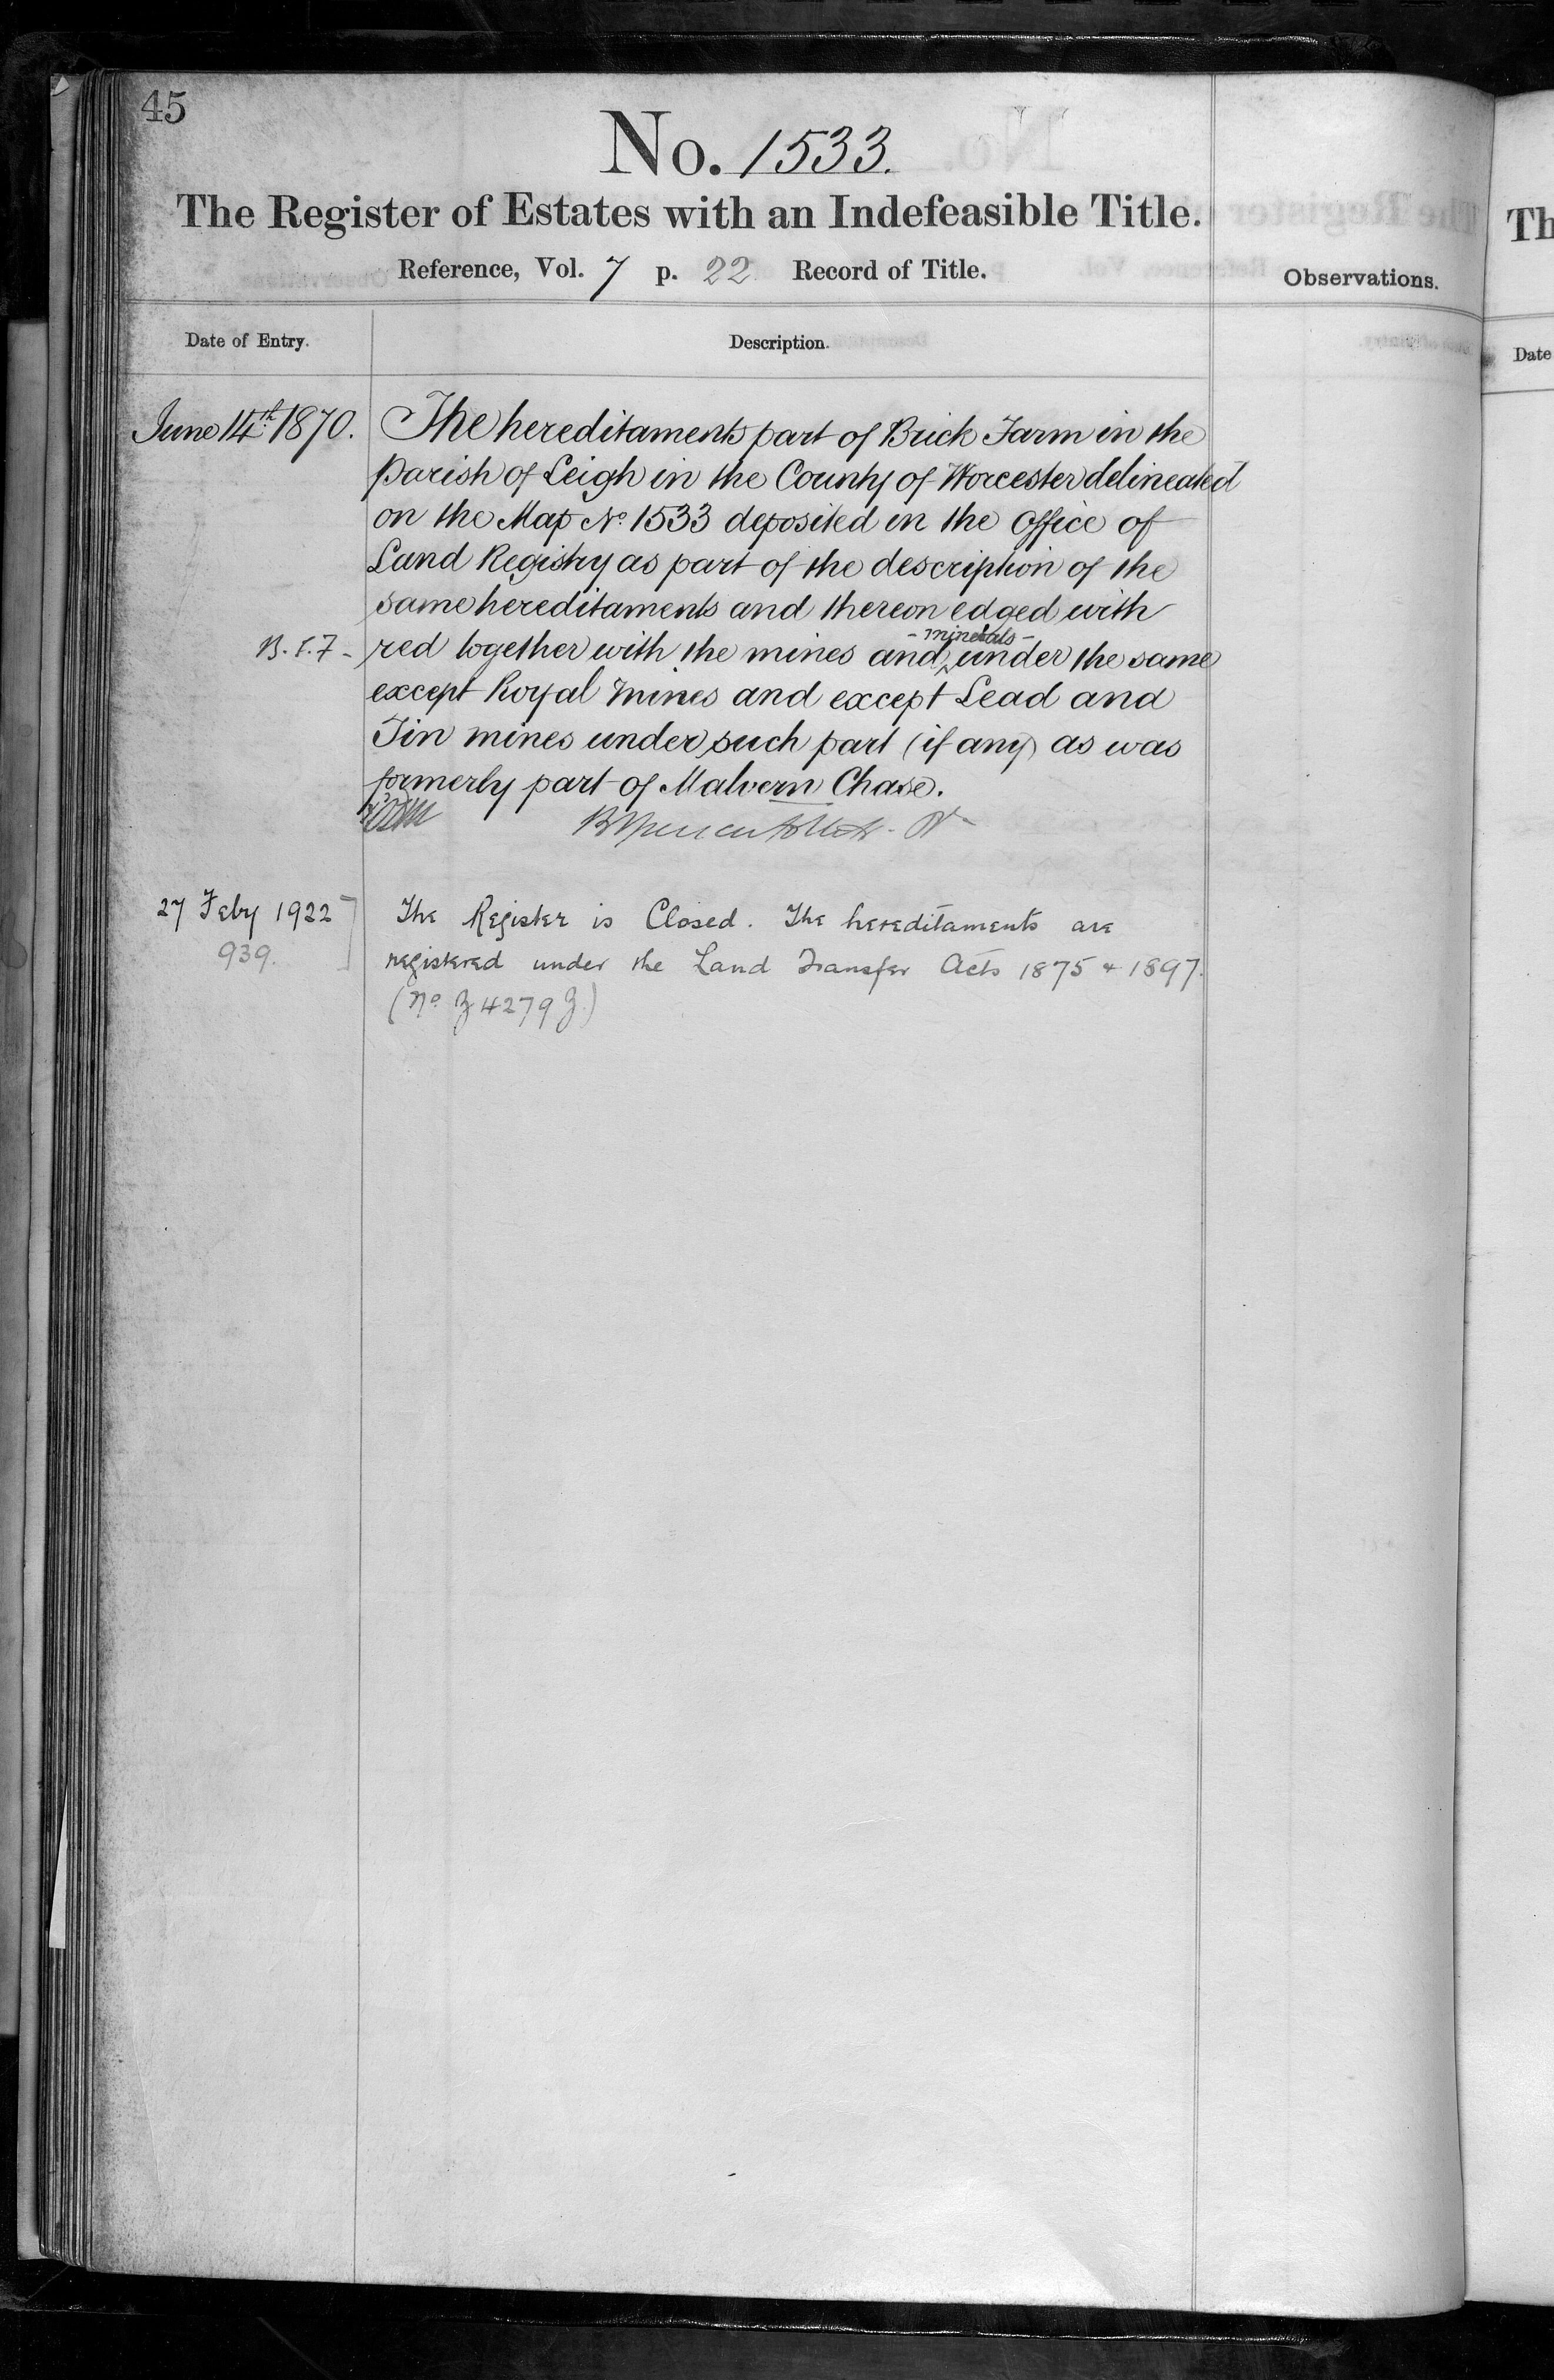 45
No. 1533.
The Register of Estates with an Indefeasible Title.
Reference, Vol. 7 p. 22 Record of Title.
Observations.
Date of Entry.
Description.
June 14th 1870.
The hereditaments part of Brick Farm in the
Parish of Leigh in the County of Worcester delineated
on the Map No 1533 deposited in the Office of
Land Registry as part of the description of the
same hereditaments and thereon edged with
- minerals -
red together with the mines and under the same
except Royal Mines and except Lead and
Tin mines under such part (if any) as was
formerly part of Malvern Chase.
27 Feby 1922
939.
The Register is Closed. The hereditaments are
registered under the Land Transfer Acts 1875 & 1897.
(No Z 4279 Z.)
Th
Date